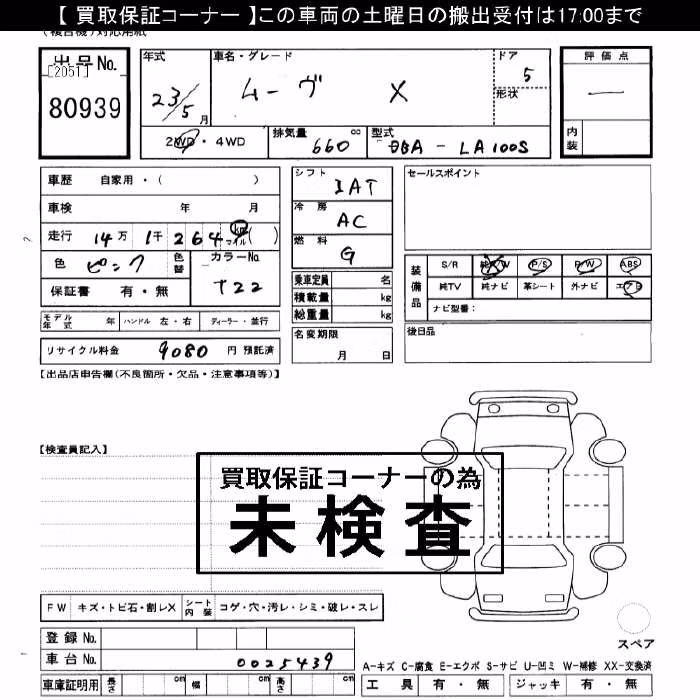 【 買取保証コーナー 】この車両の土曜日の搬出受付は17:00まで
(複合機)対応用紙
出品No.
[2051]
80939
年式
23/5 月
車名・グレード
ムーヴ X
ドア
5
形状
評価点
ー
内装
2WD・4WD
排気量 cc
660
型式
DBA - LA100S
車歴 自家用・( )
車検 年 月
走行 14万 1千264 km マイル ( )
色 ピンク
色替
カラーNo
T22
保証書 有・無
シフト
IAT
冷房
AC
燃料
G
乗車定員 名
積載量 kg
総重量 kg
セールスポイント
装備品
S/R 純A/W P/S P/W ABS
純TV 純ナビ 革シート 外ナビ エアB
ナビ型番:
モデル年式 年 ハンドル 左・右 ディーラー・並行
名変期限
月 日
後日品
リサイクル料金 9080 円 預託済
【出品店申告欄(不良箇所・欠品・注意事項等)】
【検査員記入】
買取保証コーナーの為
未検査
FW キズ・トビ石・割レX シート内装 コゲ・穴・汚レ・シミ・破レ・スレ
スペア
登録No.
車台No. 0025439
A-キズ C-腐食 E-エクボ S-サビ U-凹ミ W-補修 XX-交換済
車庫証明用 長さ cm 幅 cm 高さ cm
工具 有・無 ジャッキ 有・無